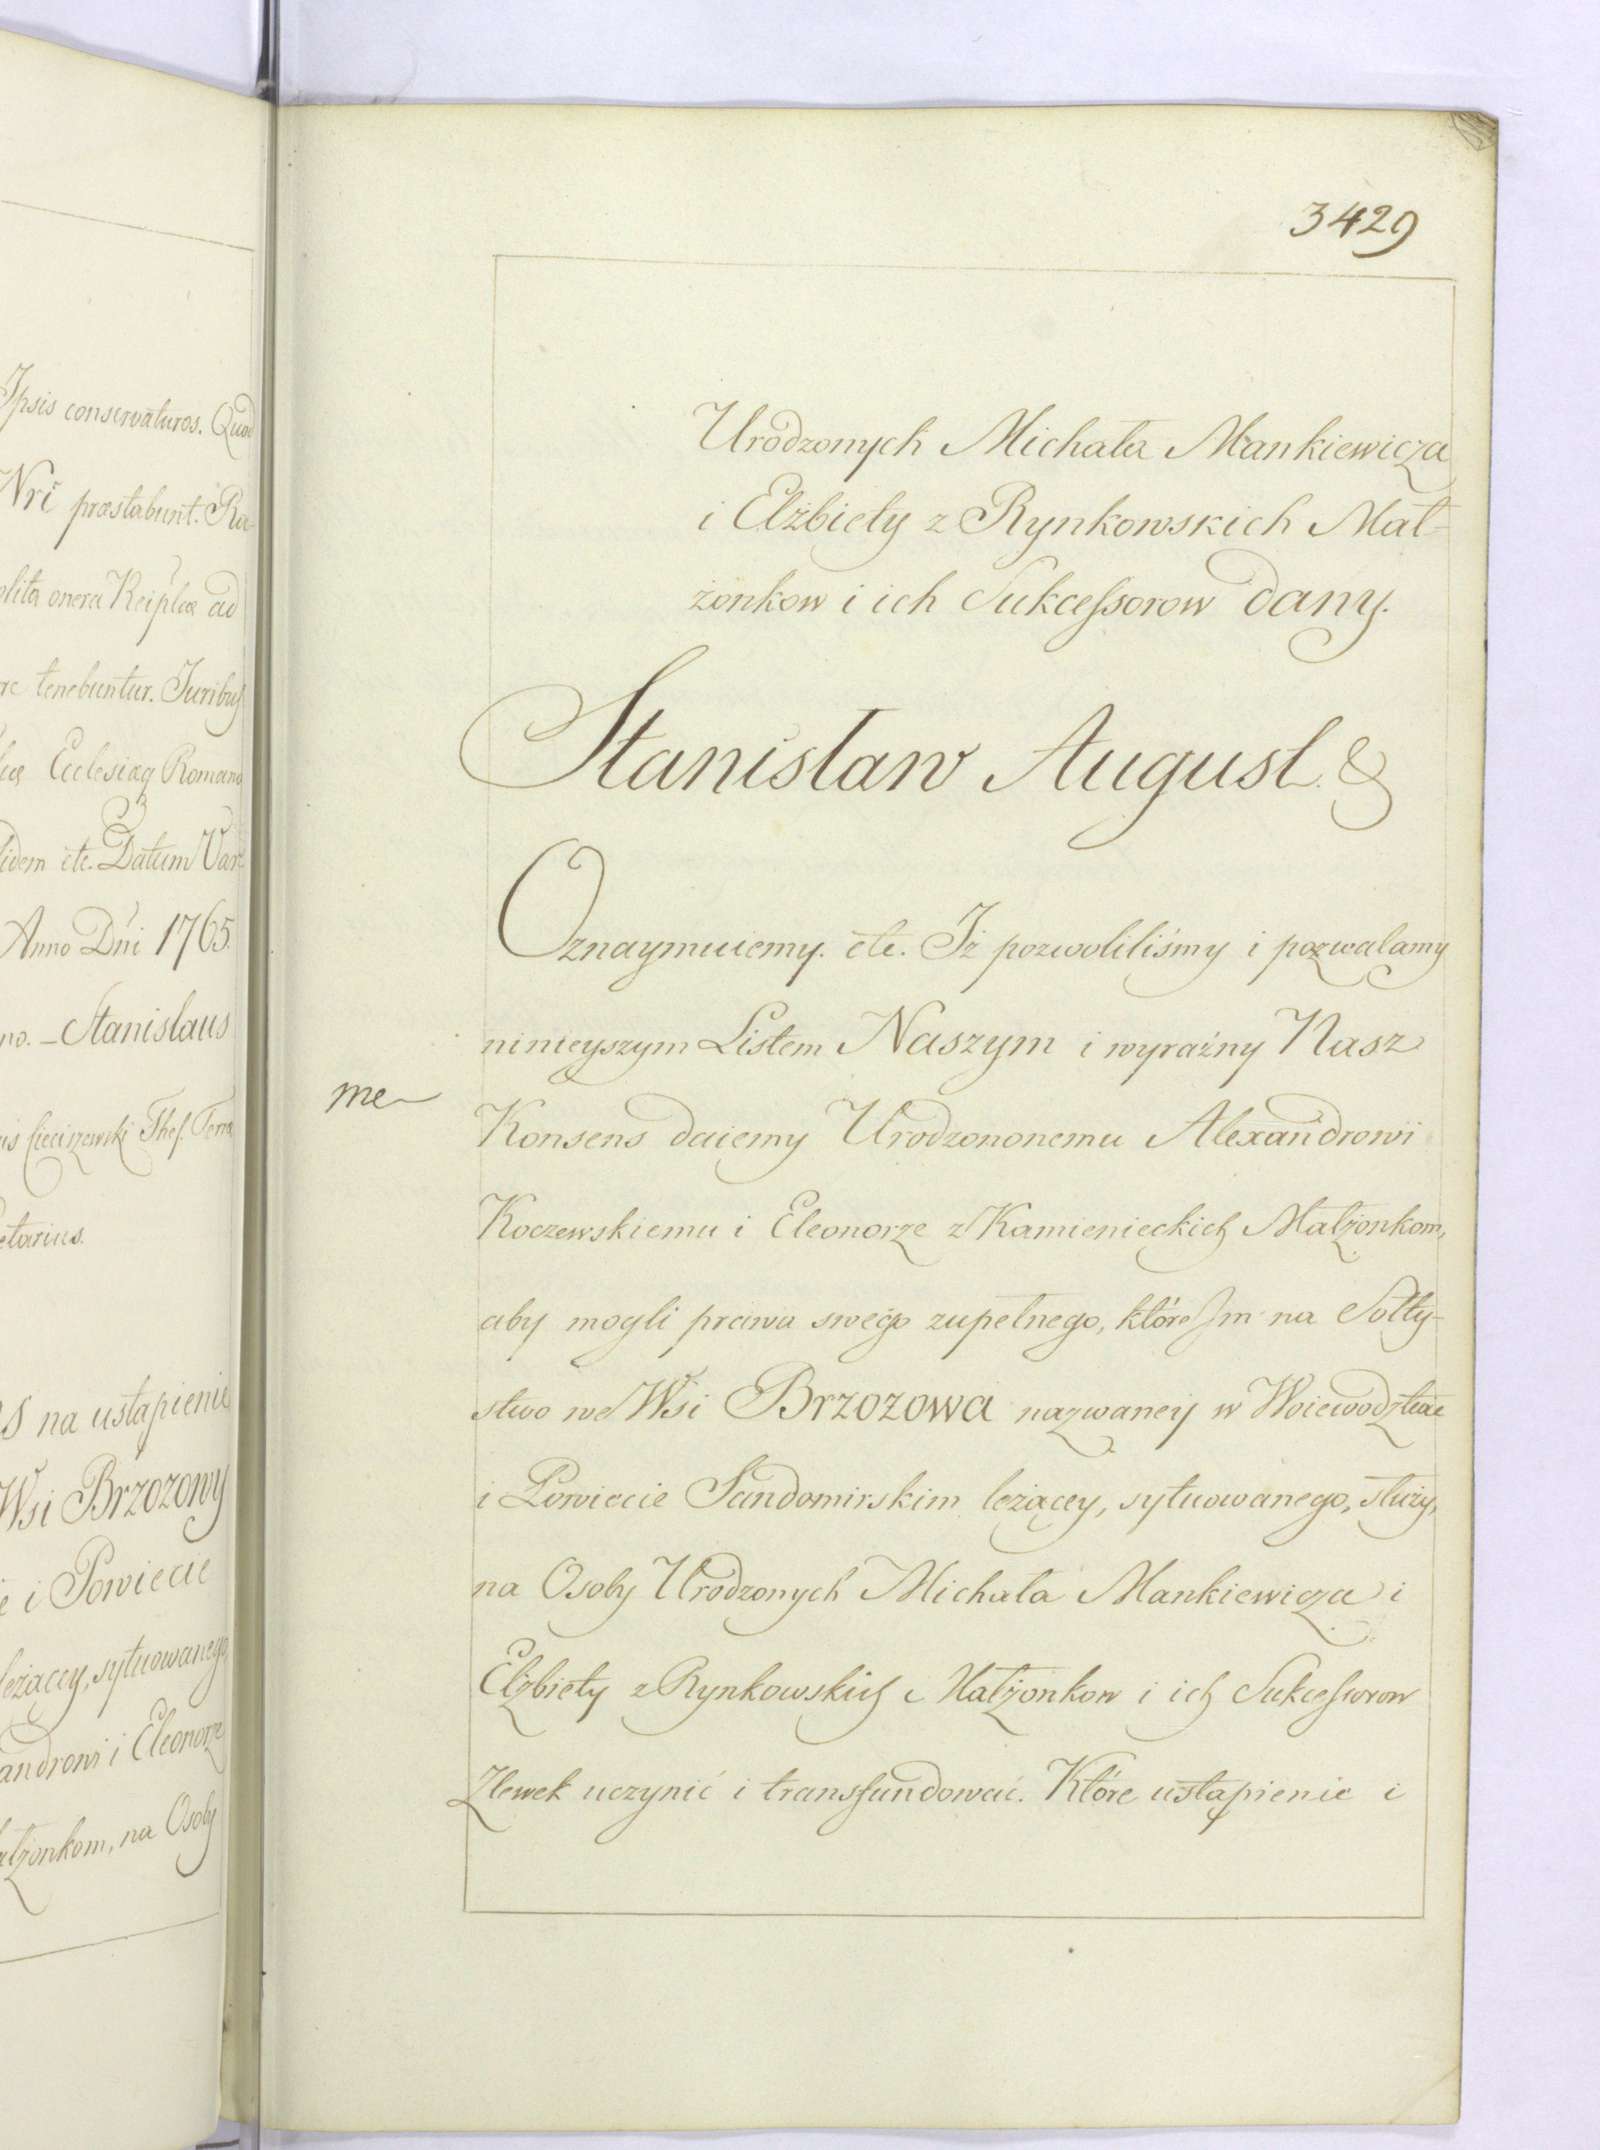 Ipsis conservaturos. Quod
Nri præstabunt. Ra-
onera Reiplæ ad
tenebuntur. Juribus
Ecclesiæq Romano
etc. Datum Var-
Anno Dni 1765.
no. – Stanislaus
Cieciszewski Thes. Terra
etarius.
S na ustąpienie
Wsi Brzozowy
i Powiecie
leżącey, sytuowanego
androwi i Eleonorze
ałżonkom, na Osoby
3429
Urodzonych Michała Mankiewicza
i Elżbiety z Rynkowskich Mał-
żonkow i ich Sukcessorow dany.
Stanisław August. &
Oznaymuiemy. etc. Iż pozwoliliśmy i pozwalamy
ninieyszym Listem Naszym i wyraźny Nasz
me
Konsens daiemy Urodzononemu Alexandrowi
Koczewskiemu i Eleonorze z Kamienieckich Małżonkom,
aby mogli prawa swego zupełnego, które Im na Sołty-
stwo we Wsi Brzozowa nazwaney w Woiewodztwie
i Powiecie Sandomirskim leżącey, sytuowanego, służy,
na Osoby Urodzonych Michała Mankiewicza i
Elżbiety z Rynkowskich Małżonkow i ich Sukcessorow
Zlewek uczynić i transfundować. Które ustąpienie i